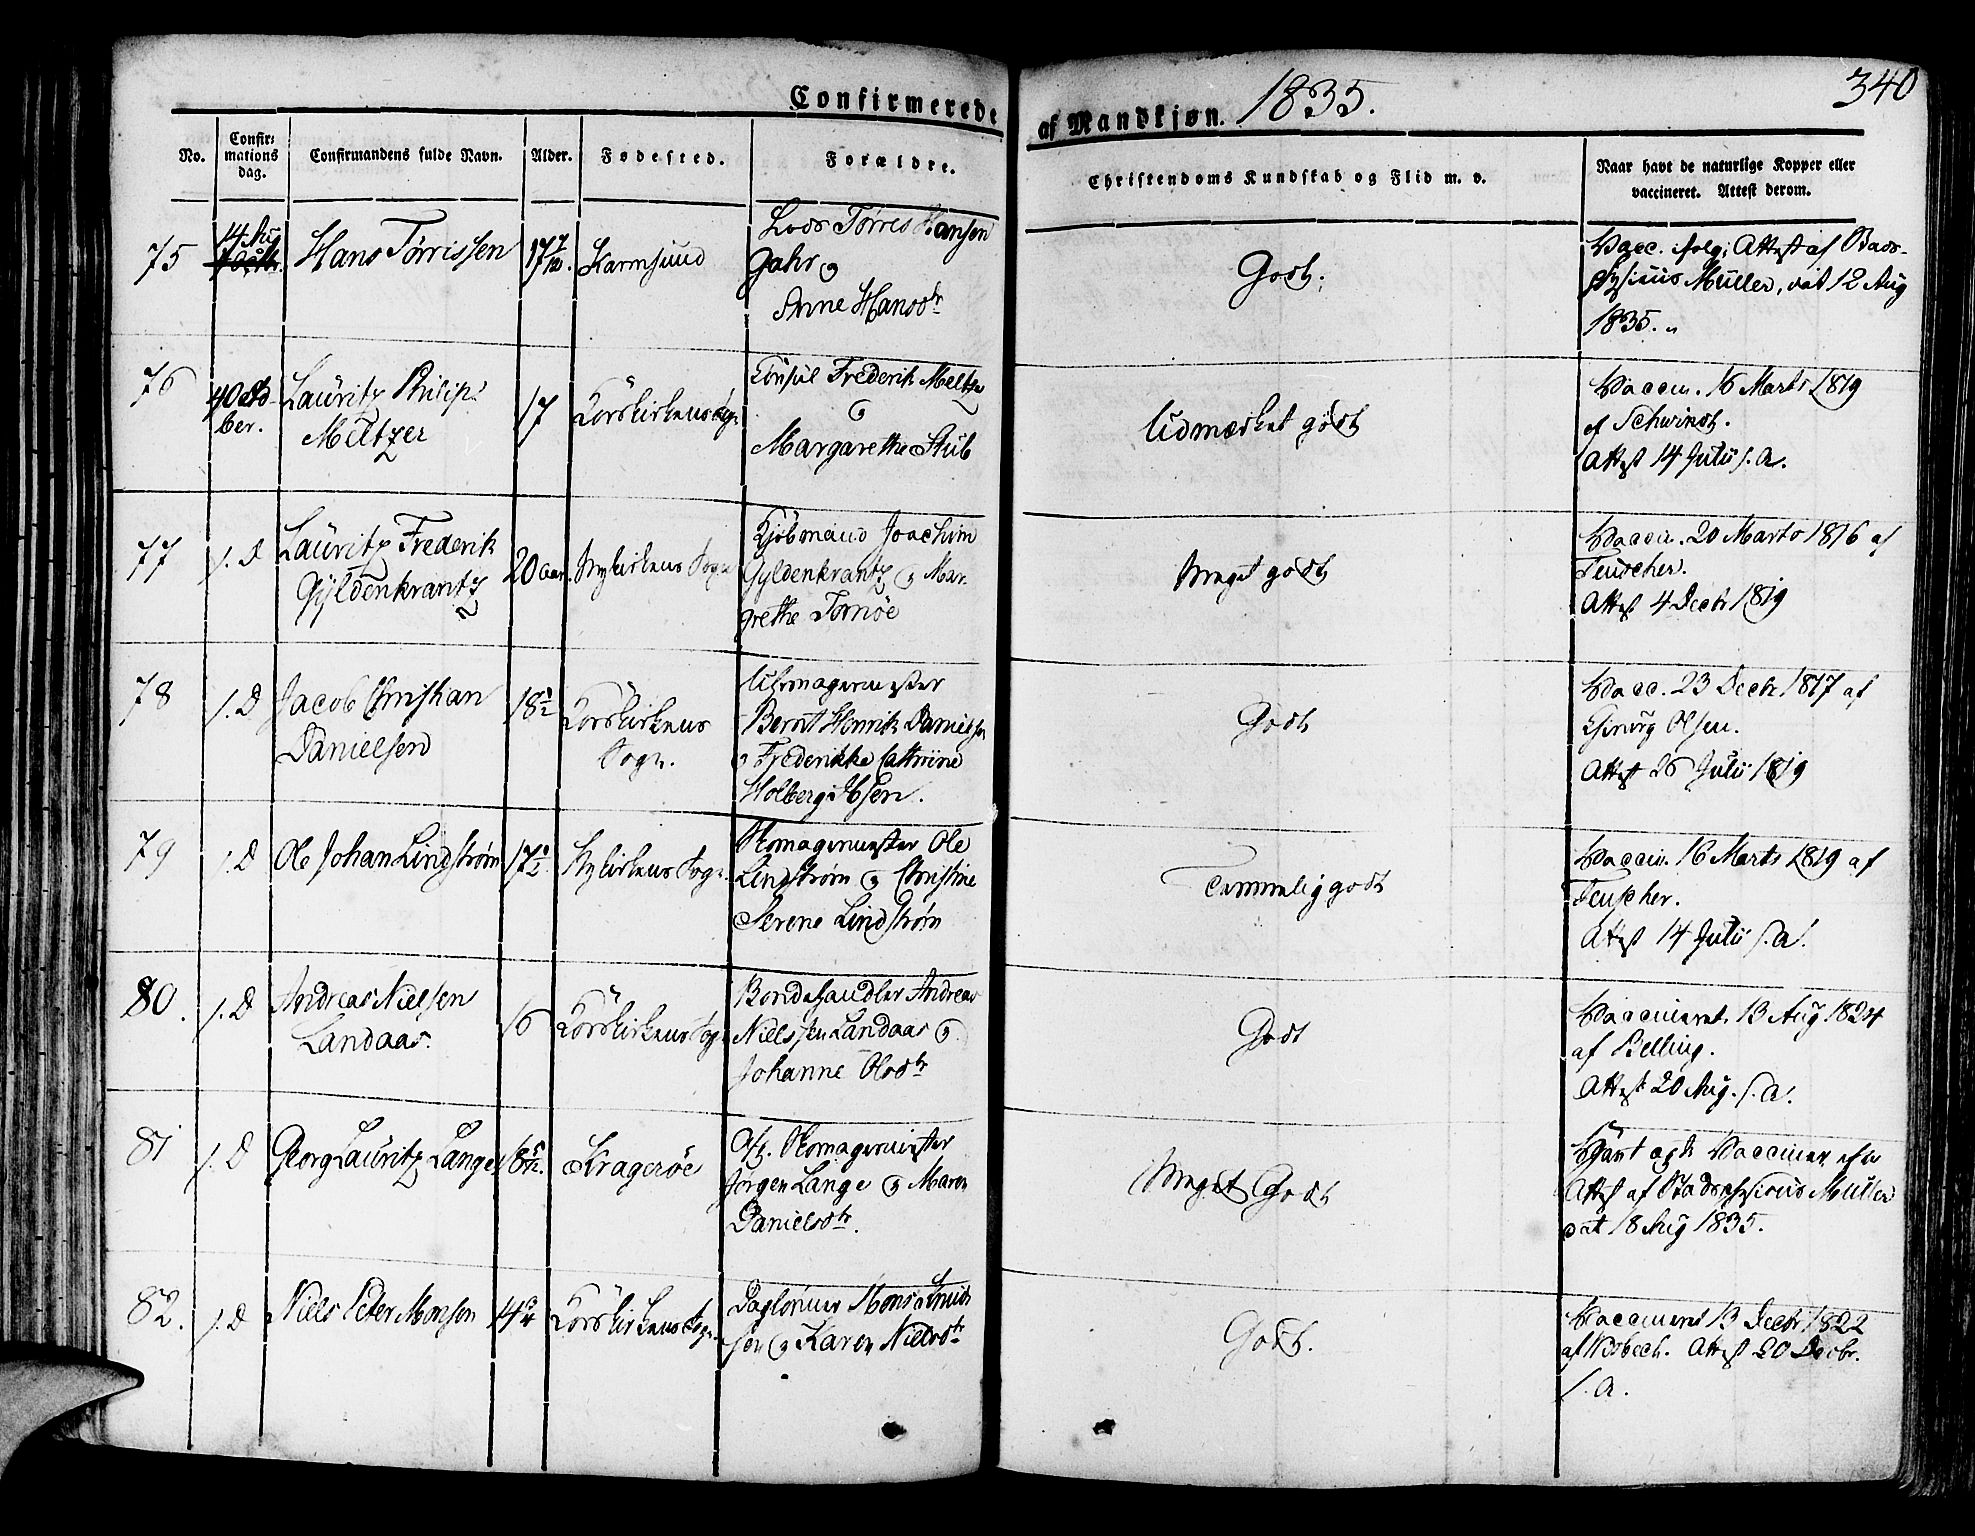 Confirmerede
af Mandkjøn. 1835.
340
No.
Confir-
mations
dag.
Confirmandens fulde Navn.
Alder.
Fødested.
Forældre.
Christendoms Kundskab og Flid m. v.
Naar havt de naturlige Kopper eller
vaccineret. Attest derom.
75
14 Aug
Hans Tørrissen
17 7/12.
Karmsund
Lods Tørres Hansen
Gahr og
Anne Hansdtr
Godt.
Vacc. ifølg: Attest af Stads-
physicus Müller, dat 12 Aug
1835.
76
4 Octo-
ber.
Lauritz Philip
Meltzer
17
Korskirkens Sogn
Consul Frederik Meltzer
og
Margarethe Stub
Udmærket godt
Vaccin. 16 Marts 1819
af Schwindt.
Attest 14 Julii s. A.
77
s. D
Lauritz Frederik
Gyldenkrantz
20 aar.
Nykirkens Sogn
Kjøbmand Joachim
Gyldenkrantz og Mar-
grethe Tornöe
Meget godt
Vaccin. 20 Marts 1816 af
Teuscher.
Attest 4 Decbr 1819
78
s. D
Jacob Christian
Danielsen
18 1/2
Korskirkens
Sogn.
Uhrmagermester
Bernt Henrik Danielsen
og Frederikke Cathrine
Holberg Ibsen.
Godt
Vacc. 23 Decbr 1817 af
Olsen.
Attest 26 Julii 1819
79
s. D
Ole Johan Lindstrøm
17 1/2
Nykirkens Sogn.
Skomagermester Ole
Lindstrøm og Christine
Serene Lindstrøm
Temmelig godt
Vaccin. 16 Marts 1819 af
Teuscher.
Attest 14 Julii s. A.
80.
s. D
Andreas Nielsen
Landaas.
16
Korskirkens Sogn
Bondehandler Andreas
Nielssen Landaas og
Johanne Olsdtr
Godt
Vaccineret 13 Aug. 1824
af Belling.
Attest 20 Aug. s. A.
81
s. D
Georg Lauritz Lange
Kragerøe
Afg. Skomagermester
Jørgen Lange og Maren
Danielsdtr.
Meget Godt
Havt ægte Vacciner efter
Attest af Stadsphysicus Müller
dat 18 Aug 1835.
82.
s. D
Niels Peter Monsen
14 3/4
Korskirkens Sogn
Dagleier Mons Knud-
sen og Karen Nielsdtr
Godt.
Vaccineret 13 Decbr 1822
af Wisbech. Attest 20 Decbr.
s. A.